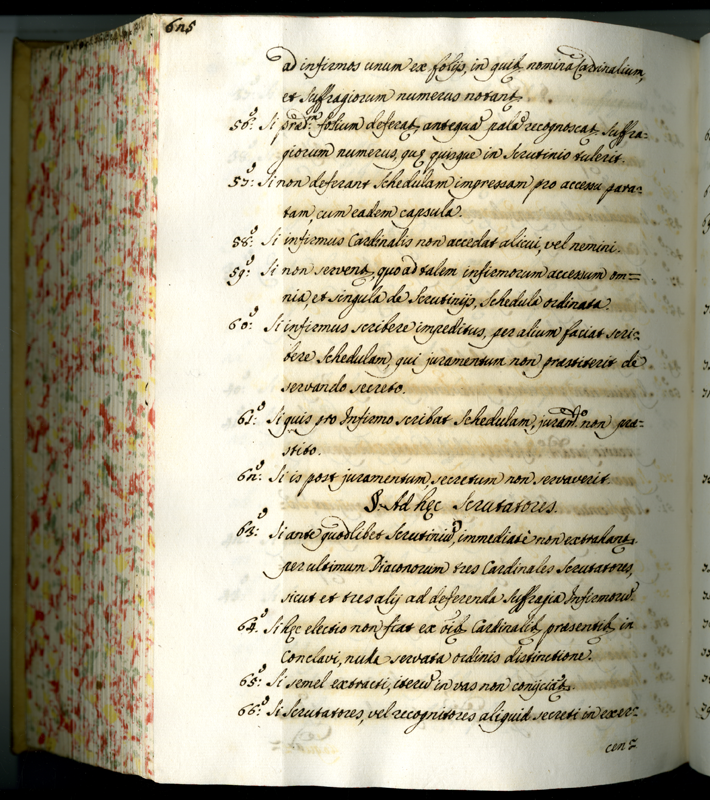 625
ad infirmos unum ex folijs, in quib. nomina Cardinalium,
et Suffragiorum numerus notant.
56.º Si prệ.m folium deferat, antequa palã recognoscat Suffra=
giorum numerus, quę quisque in Scrutinio tulerit.
57.º Si non deferant Schedulam impressam pro accessu para=
tam, cum eadem capsula.
58.º Si infirmus Cardinalis non accedat alicui, vel nemini.
59.º Si non servent, quoad talem infirmorum accessum om=
nia, et singula de Scrutinijs, Schedula ordinata.
60.º Si infirmus scribere impeditus, per alium faciat scri=
bere Schedulam, qui juramentum non prastiterit de
servando secreto.
61.º Si quis pro Infirmo scribat Schedulam, juram.to non pra=
stito.
62.º Si is post juramentum, secretum non servaverit.
§. Ad hęc Scrutatores.
63.º Si ante quodlibet Scrutiniũ, immediatè non extrahant
per ultimum Diaconorum tres Cardinales Scrutatores,
sicut et tres alij ad deferenda Suffragia Infirmorũ.
64.º Si hęc electio non fiat ex oib. Cardinalib. prasentib. in
Conclavi, nulla servata ordinis distinctione.
65.º Si semel extracti, iterũ in vas non conijciãt.
66.º Si Scrutatores, vel recognitores aliquid secreti in exer=
cen=